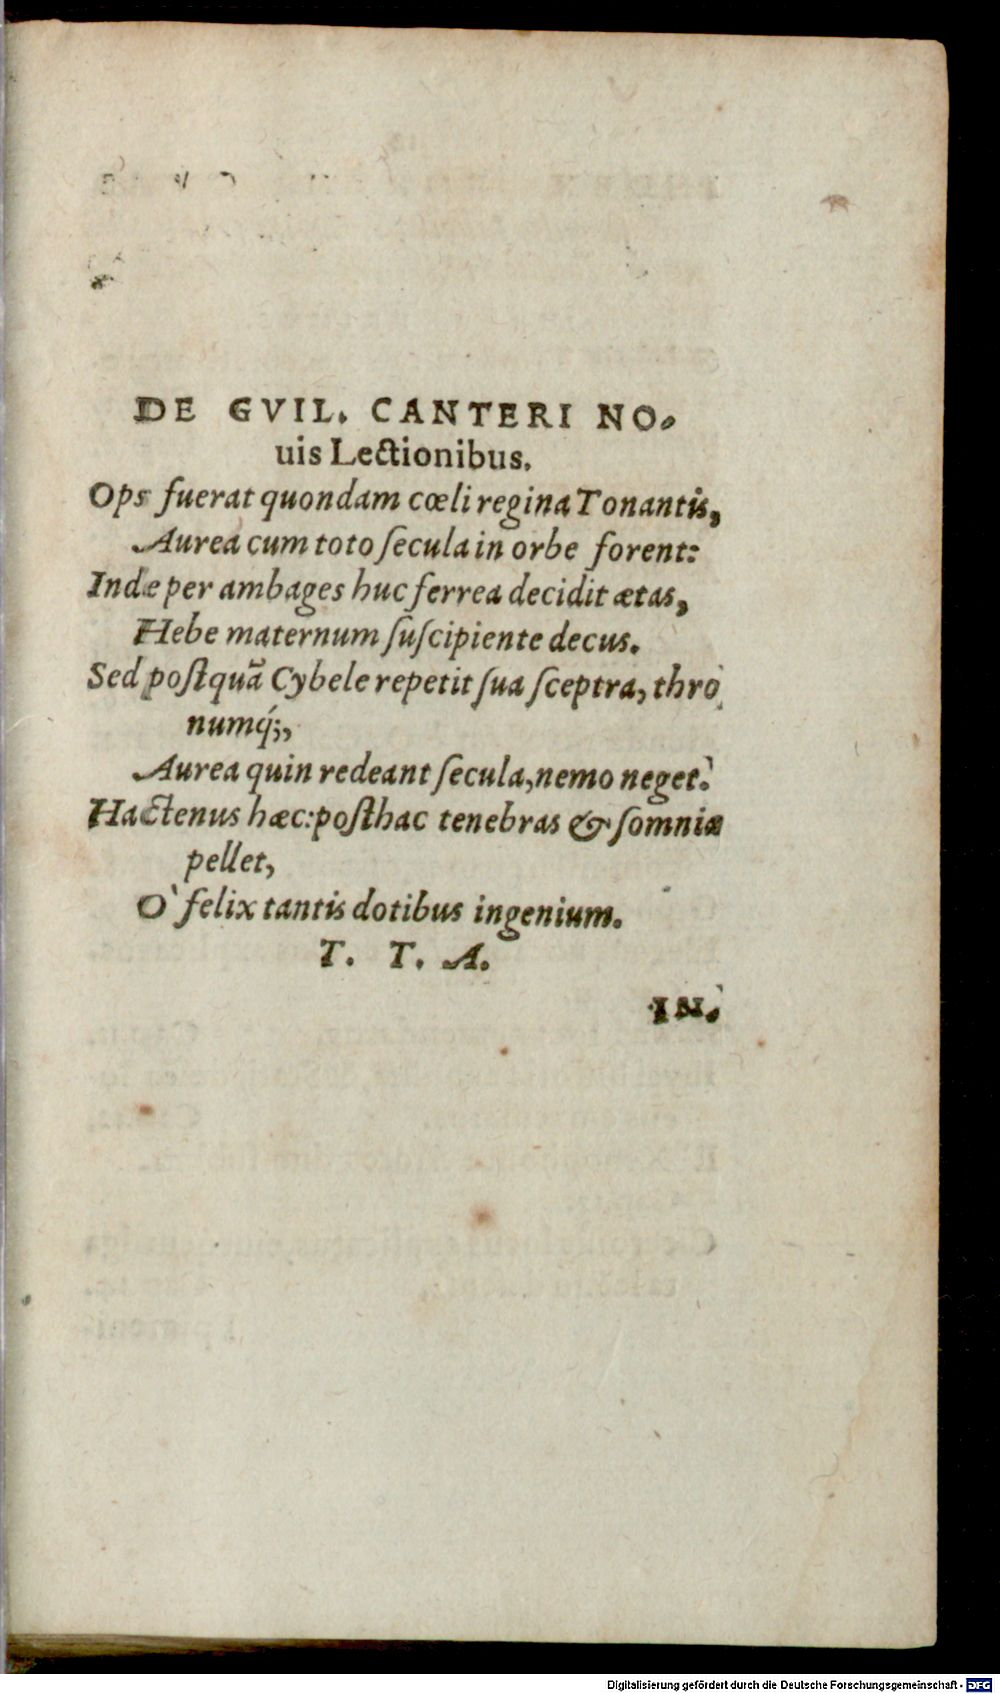 DE GVIL. CANTERI NO-
uis Lectionibus.
Ops fuerat quondam cœli regina Tonantis,
Aurea cum toto ſecula in orbe forent:
Inde per ambages huc ferrea decidit ætas,
Hebe maternum ſuſcipiente decus.
Sed poſtquā Cybele repetit ſua ſceptra, thro
numq́;,
Aurea quin redeant ſecula, nemo neget.
Hactenus hæc: poſthac tenebras & ſomnia
pellet,
O` felix tantis dotibus ingenium.
T. T. A.
IN-
Digitalisierung gefördert durch die Deutsche Forschungsgemeinschaft - DFG